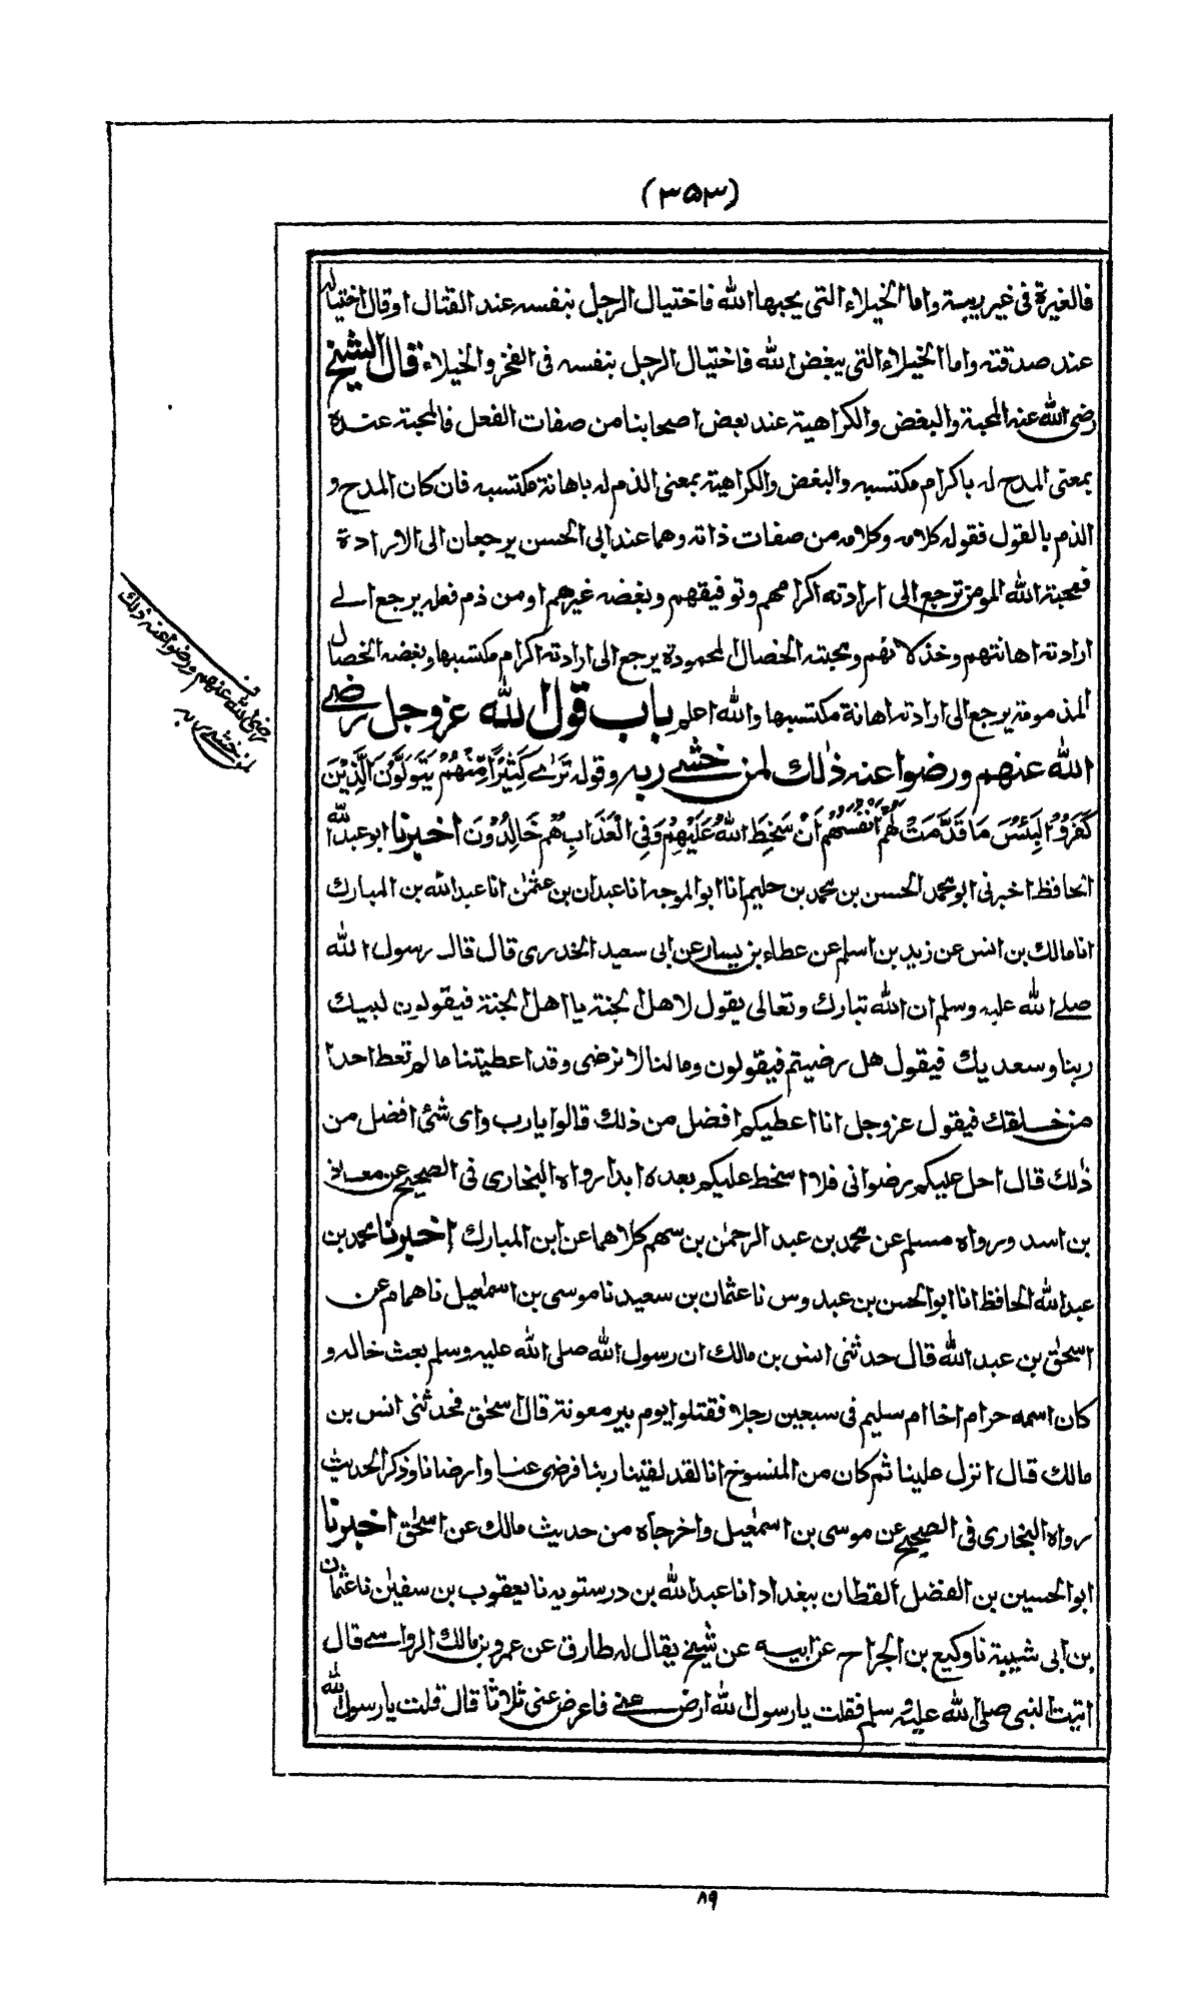 (٣٥٣)
فالغيرة في غير ريبة واما الخيلاء التي يحبها الله فاختيال الرجل بنفسه عند القتال او قال اختياله
عند صدقته واما الخيلاء التي يبغض الله فاختيال الرجل بنفسه في الفخر والخيلاء قال الشيخ
رضي الله عنه المحبة والبغض والكراهية عند بعض اصحابنا من صفات الفعل فالمحبة عنده
بمعنى المدح له باكرام مكتسبه والبغض والكراهية بمعنى الذم له باهانة مكتسبه فان كان المدح و
الذم بالقول فقوله كلامه وكلامه من صفات ذاته وهما عند ابي الحسن يرجعان الى الارادة
فمحبة الله المومن ترجع الى ارادته اكرامهم وتوفيقهم وبغضه غيرهم او من ذم فعله يرجع الى
ارادته اهانتهم وخذلانهم ومحبته الخصال المحمودة يرجع الى ارادته اكرام مكتسبها وبغضه الخصال
المذمومة يرجع الى ارادته اهانة مكتسبها والله اعلم باب قول الله عز وجل رضي
الله عنهم ورضوا عنه ذلك لمن خشي ربه وقوله تَرٰى كَثِيْرًا مِّنْهُمْ يَتَوَلَّوْنَ الَّذِيْنَ
كَفَرُوْا لَبِئْسَ مَا قَدَّمَتْ لَهُمْ اَنْفُسُهُمْ اَنْ سَخِطَ اللهُ عَلَيْهِمْ وَفِي الْعَذَابِ هُمْ خَالِدُوْنَ اخبرنا ابو عبد الله
الحافظ اخبرني ابو محمد الحسن بن محمد بن حليم انا ابو الموجه انا عبدان بن عثمٰن انا عبد الله بن المبارك
انا مالك بن انس عن زيد بن اسلم عن عطاء بن يسار عن ابي سعيد الخدري قال قال رسول الله
صلى الله عليه وسلم ان الله تبارك وتعالى يقول لاهل الجنة يا اهل الجنة فيقولون لبيك
ربنا وسعديك فيقول هل رضيتم فيقولون وما لنا لا نرضى وقد اعطيتنا ما لم تعط احدا
من خلقك فيقول عز وجل انا اعطيكم افضل من ذلك قالوا يا رب واي شئ افضل من
ذٰلك قال احل عليكم رضواني فلا اسخط عليكم بعده ابدا رواه البخاري في الصحيح عن معاذ
بن اسد ورواه مسلم عن محمد بن عبد الرحمٰن بن سهم كلاهما عن ابن المبارك اخبرنا محمد بن
عبد الله الحافظ انا ابو الحسن بن عبدوس نا عثمان بن سعيد نا موسى بن اسمٰعيل نا همام عن
اسحٰق بن عبد الله قال حدثني انس بن مالك ان رسول الله صلى الله عليه وسلم بعث خاله و
كان اسمه حرام اخا ام سليم في سبعين رجلا فقتلوا يوم بير معونة قال اسحٰق فحدثني انس بن
مالك قال انزل علينا ثم كان من المنسوخ انا لقد لقينا ربنا فرضي عنا وارضانا وذكر الحديث
رواه البخاري في الصحيح عن موسى بن اسمٰعيل واخرجاه من حديث مالك عن اسحٰق اخبرنا
ابو الحسين بن الفضل القطان ببغداد انا عبد الله بن درستويه نا يعقوب بن سفيٰن نا عثمان
بن ابي شيبة نا وكيع بن الجراح عن ابيه عن شيخ يقال له طارق عن عمرو بن مالك الرواسي قال
اتيت النبي صلى الله عليه وسلم فقلت يا رسول الله ارض عني فاعرض عني ثلاثا قال قلت يا رسول الله
رضي الله عنهم ورضوا عنه ذلك
لمن خشي ربه
٨٩